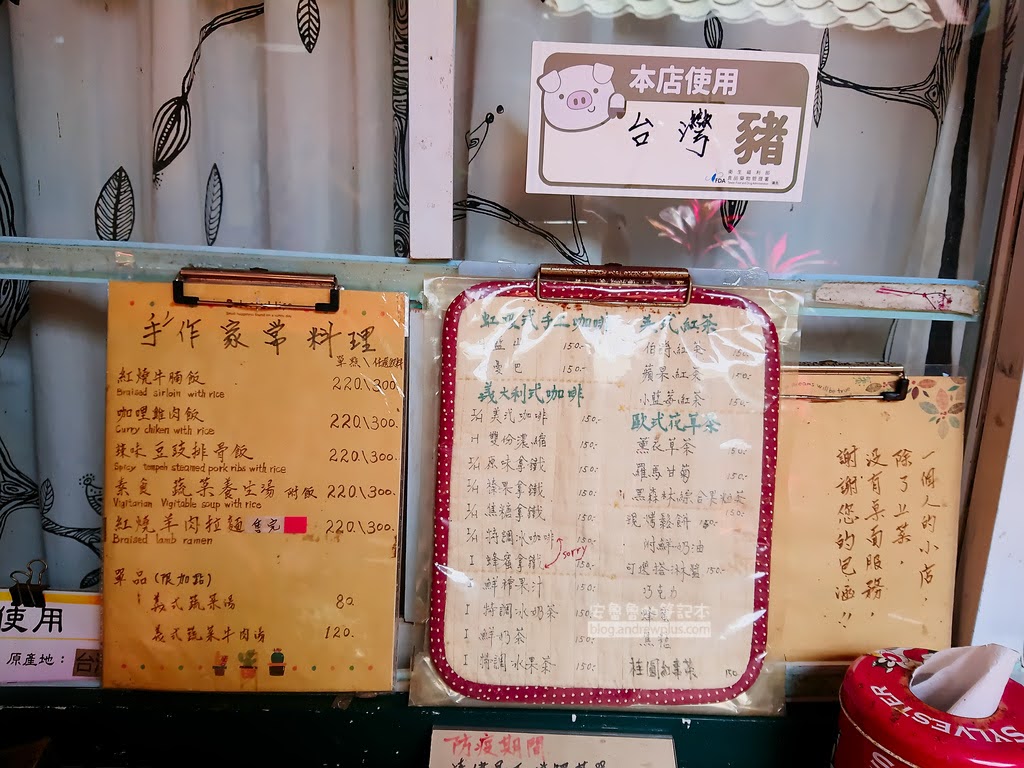 本店使用
台灣
豬
手作家常料理
單点\任選飲料
紅燒牛腩飯 220\300.
Braised sirloin with rice
咖哩雞肉飯 220\300.
Curry chiken with rice
辣味豆豉排骨飯 220\300.
Spicy tempeh steamed pork ribs with rice
素食 蔬菜養生湯 附飯 220\300.
Vigitarian Vigitable soup with rice
紅燒羊肉拉麵 售完 220\300.
Braised lamb ramen
單品(限加點)
義式蔬菜湯 80
義式蔬菜牛肉湯 120.
使用
原產地:台
虹吸式手工咖啡
藍山 150.
曼巴 150.
義大利式咖啡
I/H 美式咖啡 150.
H 雙份濃縮 150.
I/H 原味拿鐵 150.
I/H 榛果拿鐵 150.
I/H 焦糖拿鐵 150.
I/H 特調冰咖啡 150.
sorry
I 蜂蜜拿鐵 150.
I 鮮榨果汁 150.
I 特調冰奶茶 150.
I 鮮奶茶 150.
I 特調水果茶 150.
英式紅茶
伯爵紅茶 150.
蘋果紅茶 150.
小藍莓紅茶 150.
歐式花草茶
薰衣草茶 150.
羅馬甘菊 150.
黑森林綜合果粒茶 150.
現烤鬆餅 150.
附鮮奶油
可選搭淋醬 150.
巧克力
蜂蜜
黑糖
桂圓紅棗茶 150.
一個人的小店,
除了上菜,
沒有桌面服務,
謝謝您的包涵!!
安魯魯的筆記本
blog.andrewplus.com
SYLVESTER
防疫期間